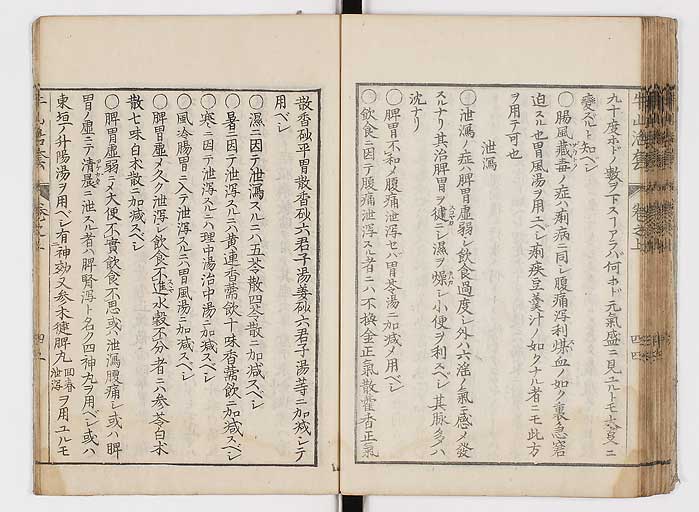 九十度ホドノ數ヲ下スヿアラバ何ホド元氣盛ニ見ユルトモ大変ニ
變ズルト知ベシ
○腸風藏毒ノ症ハ痢病ニ同シ腹痛瀉利煤血ノ如ク裏急窘
迫スル也胃風湯ヲ用ユベシ痢疾豆羹汁ノ如クナル者ニモ此方
ヲ用テ可也
泄瀉
○泄瀉ノ症ハ脾胃虚弱シ飲食過度シ外ハ六淫ノ氣ニ感メ發
スルナリ其治脾胃ヲ健ニシ濕ヲ燥シ小便ヲ利スベシ其脉多クハ
沈ナリ
○脾胃不和メ腹痛泄瀉セバ胃苓湯ニ加減メ用ベシ
○飲食ニ因テ腹痛泄瀉スル者ニハ不換金正氣散藿香正氣
牛山活套 卷之上
散香砂平胃散香砂六君子湯姜砂六君子湯等ニ加減シテ
用ベシ
○濕ニ因テ泄瀉スルニハ五苓散四苓散ニ加減スベシ
○暑ニ因テ泄瀉スルニハ黄連香薷飲十味香薷飲ニ加減スベシ
○寒ニ因テ泄瀉スルニハ理中湯治中湯ニ加減スベシ
○風冷腸胃ニ入テ泄瀉スルニハ胃風湯ニ加減スベシ
○脾胃虚メ久ク泄瀉シ飲食不進水穀不分者ニハ参苓白朮
散七味白朮散ニ加減スベシ
○脾胃虚弱ニメ大便不實飲食不思或ハ泄瀉腹痛シ或ハ脾
胃ノ虚ニテ清晨ニ泄スル者ハ脾腎瀉ト名ク四神丸ヲ用ベシ或ハ
東垣ノ升陽湯ヲ用ベシ有神効又参朮健脾丸回春泄瀉ヲ用ユルモ